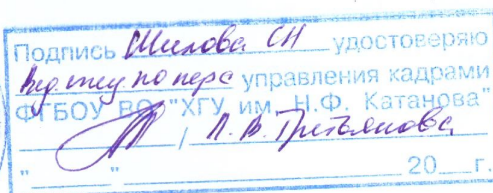 Подпись Шилова СН удостоверяю
Вед. спец по перс управления кадрами
ФГБОУ ВО "ХГУ им. Н.Ф. Катанова"
/ Л. В. Третьякова
" " 20 г.